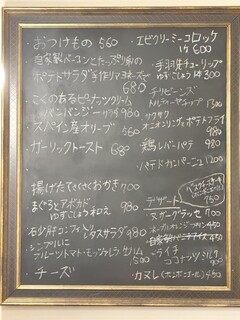 ・おつけもの 560
・自家製ベーコンとたっぷり卵の
ポテトサラダ 手作りマヨネーズ 680
・こくのあるピーナッツクリーム
バンバンジー 980
・スペイン産オリーブ 560
・ガーリックトースト 680
・揚げたてさくさくおかき 700
・まぐろとアボカド
ゆずこしょう和え 980
・砂肝コンフィ サラダ 980
・シンプルに
フルーツトマト・モッツァレラ・生ハム
・チーズ
・エビクリーミーコロッケ
1ケ 600
・手羽先チューリップ
ゆずこしょう 1本 300
・チリビーンズ
トルティーヤチップ 1300
・サクサク
オニオンリング&ポテトフライ
980
・鶏レバーパテ 980
・パテドカンパーニュ 1200
750
デザート
・ヌガーグラッセ 700
450
・ライチ
ココナッツミルク
・カヌレ 450